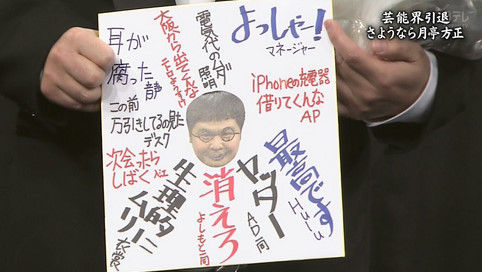 芸能界引退
さようなら月亭方正
よっしゃー!
マネージャー
電気代のムダ
照明
大阪から出てくんな
耳が
腐った
静
iPhoneの充電器
借りてくんな
AP
この前
万引きしてるの見た
デスク
次会ったら
しばく
生理的に
ムリ
衣裳
消えろ
よしもと一同
ヤッター
AD一同
最高です
Hulu